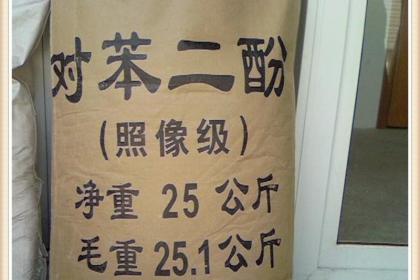 对苯二酚
（照像级）
净重 25 公斤
毛重 25.1 公斤